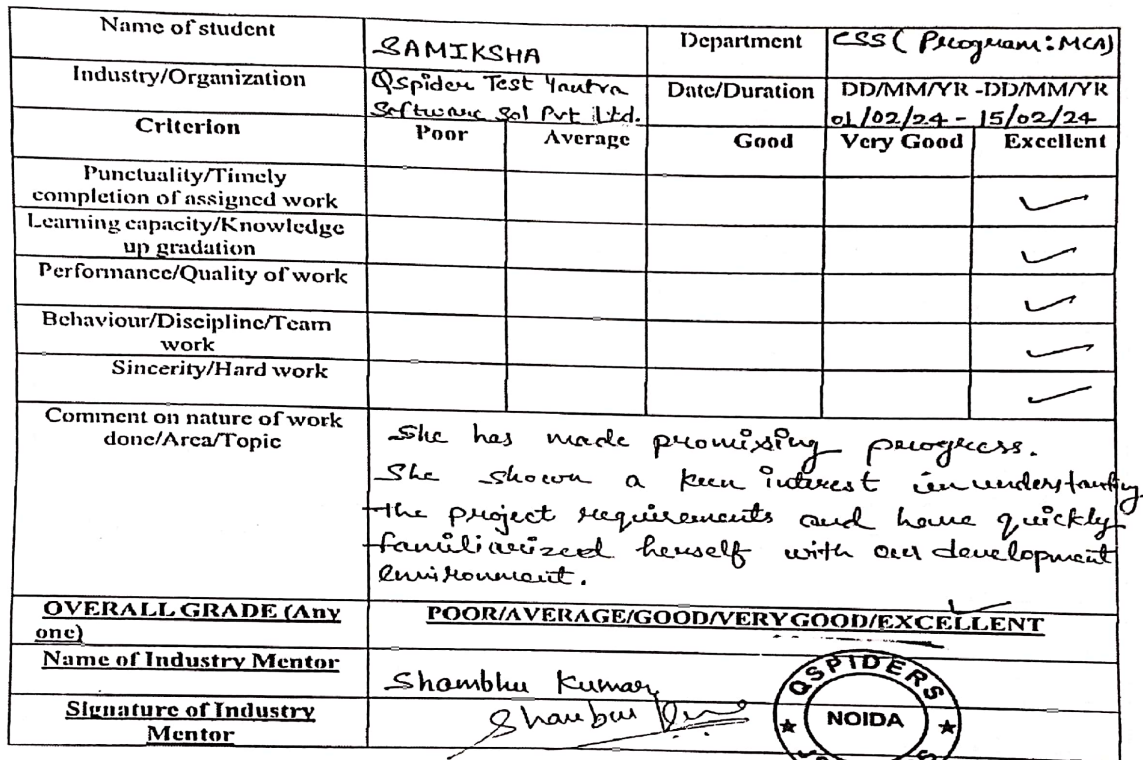 Name of student SAMIKSHA Department CSS (Program: MCA)
Industry/Organization QSpider Test Yantra Software Sol Pvt Ltd. Date/Duration DD/MM/YR -DD/MM/YR
01/02/24 - 15/02/24
Criterion Poor Average Good Very Good Excellent
Punctuality/Timely
completion of assigned work ✓
Learning capacity/Knowledge
up gradation ✓
Performance/Quality of work ✓
Behaviour/Discipline/Team
work ✓
Sincerity/Hard work ✓
Comment on nature of work
done/Area/Topic
She has made promising progress.
She shown a keen interest in understanding
the project requirements and have quickly
familiarized herself with our development
environment.
OVERALL GRADE (Any
one) POOR/AVERAGE/GOOD/VERY GOOD/EXCELLENT ✓
Name of Industry Mentor Shambhu Kumar
Signature of Industry
Mentor
QSPIDERS
NOIDA